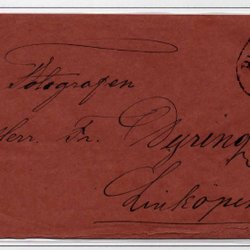 Fotografen
Herr. Fr. Dyring
Linköpin